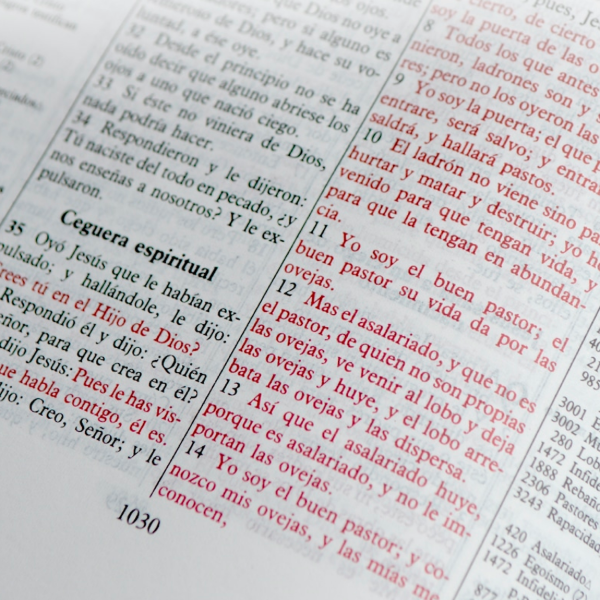 ojos.
que Dios no oye a
pero si alguno es
temeroso de Dios, y hace su vo-
luntad, a ése oye.
32 Desde el principio no se ha
oído decir que alguno abriese los
ojos a uno que nació ciego.
33 Si éste no viniera de Dios,
nada podría hacer.
34 Respondieron y le dijeron:
Tú naciste del todo en pecado, ¿y
nos enseñas a nosotros? Y le ex-
pulsaron.
Ceguera espiritual
35 Oyó Jesús que le habían ex-
pulsado; y hallándole, le dijo:
rees tú en el Hijo de Dios?
Respondió él y dijo: ¿Quién
eñor, para que crea en él?
dijo Jesús: Pues le has vis-
ue habla contigo, él es.
dijo: Creo, Señor; y le
1030
pues, Jes
cierto, de cierto
soy la puerta de las o
8 Todos los que antes
nieron, ladrones son y s
res; pero no los oyeron las
9 Yo soy la puerta; el que p
entrare, será salvo; y entra
saldrá, y hallará pastos.
10 El ladrón no viene sino pa
hurtar y matar y destruir; yo h
venido para que tengan vida, y
para que la tengan en abundan-
cia.
11 Yo soy el buen pastor; el
buen pastor su vida da por las
ovejas.
12 Mas el asalariado, y que no es
el pastor, de quien no son propias
las ovejas, ve venir al lobo y deja
las ovejas y huye, y el lobo arre-
bata las ovejas y las dispersa.
13 Así que el asalariado huye,
porque es asalariado, y no le im-
portan las ovejas.
14 Yo soy el buen pastor; y co-
nozco mis ovejas, y las mías me
conocen,
3001 E
3002 M
280 Lob
1472 Infid
1888 Rebaño
2306 Pastores
3243 Rapacidad
420 Asalariado
1226 Egoísmo (2)
1472 Infideli
877